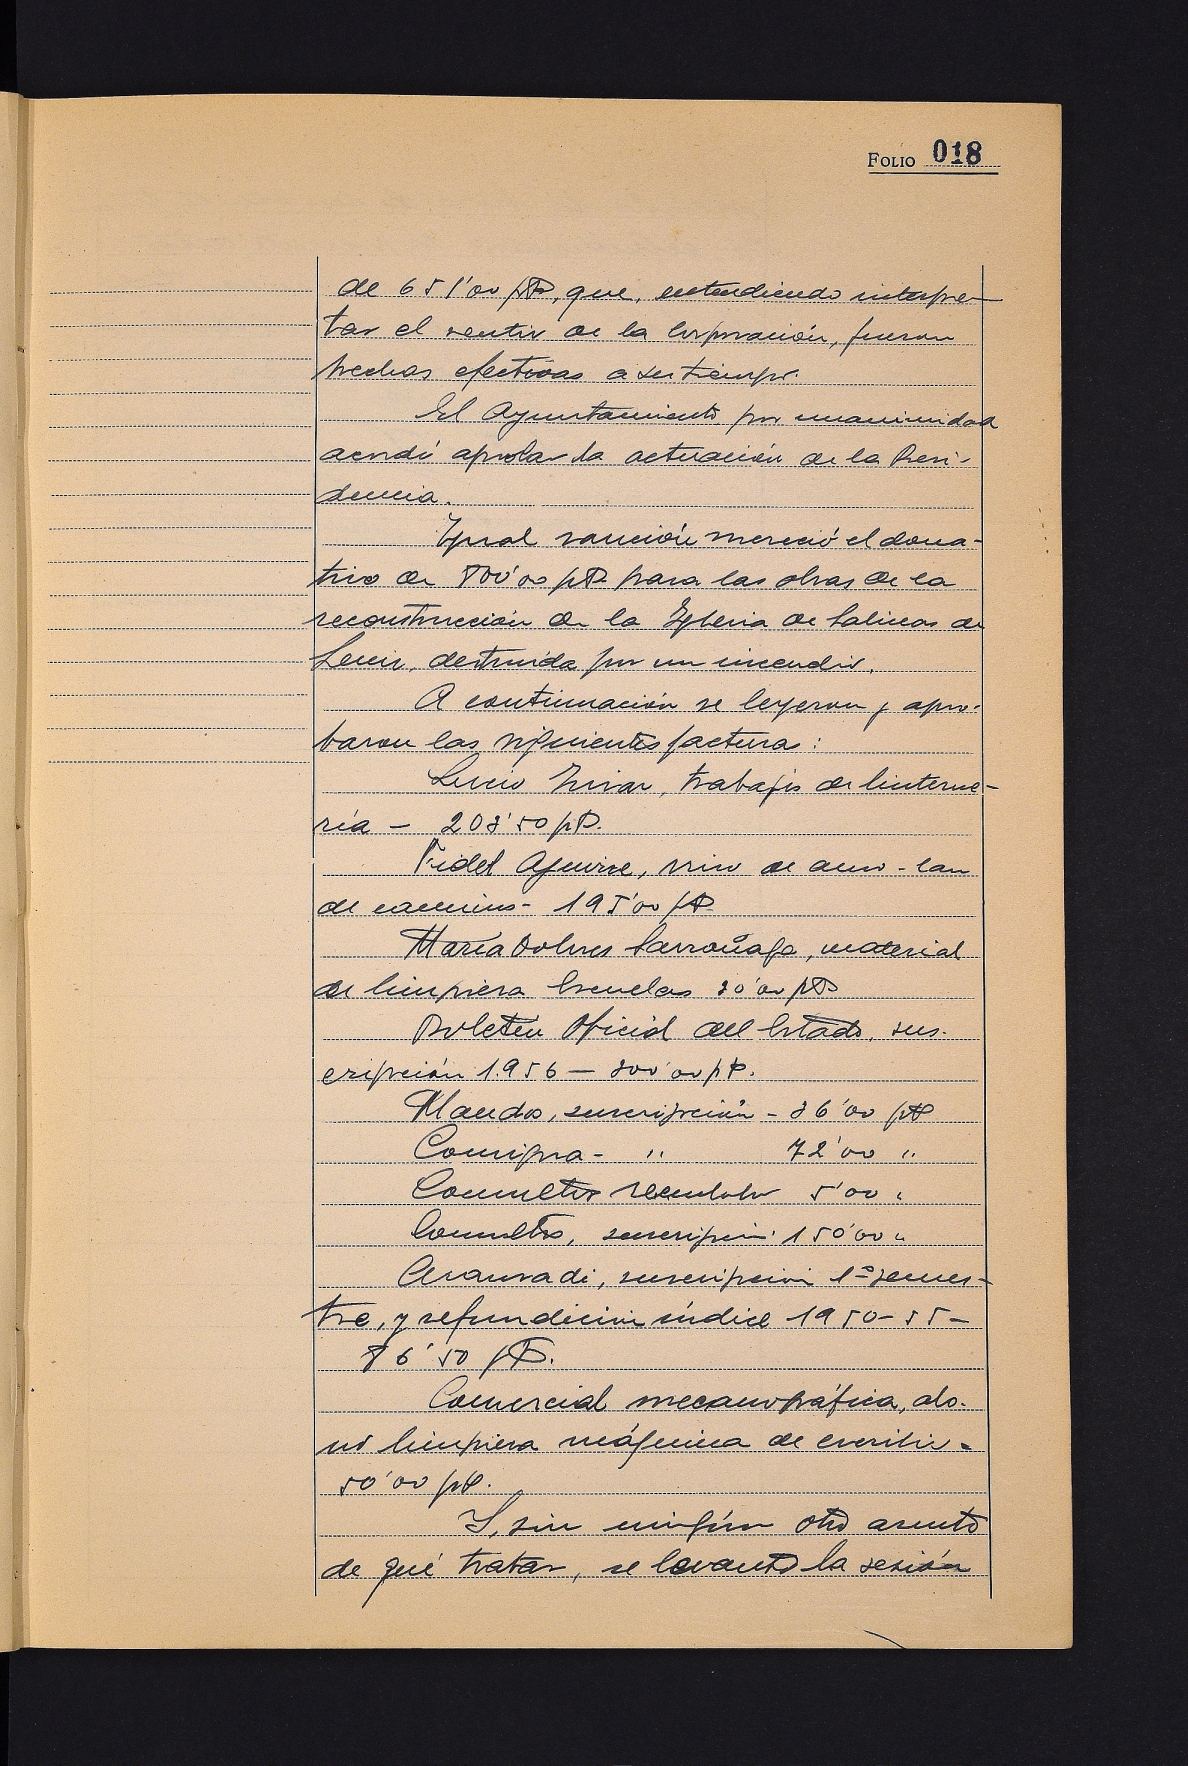 FOLIO 018
de 651'00 pts, que, entendiendo interpre-
tar el sentir de la Corporación, fueron
hechas efectivas a su tiempo.
El Ayuntamiento, por unanimidad
acordó aprobar la actuación de la Presi-
dencia.
Igual sanción mereció el dona-
tivo de 500'00 pts para las obras de la
reconstrucción de la Iglesia de Salinas de
Leniz, destruida por un incendio.
A continuación se leyeron y apro-
baron las siguientes facturas:
Lucio, trabajos de linterne-
ría - 203'50 pts.
Fidel Aguirre, vino de
de caminos - 195'00 pts
María Dolores Larrañaga, material
de limpieza Escuelas 30'00 pts
Boletin Oficial del Estado, sus-
cripción 1.956 — 300'00 pts.
Mandos, suscripción - 36'00 pts
Consigna - " 72'00 "
Consultor 5'00 "
Consultor, suscripción 150'00 "
Aranzadi, suscripción 1º semes-
tre, y refundición índice 1950-55-
86'50 pts.
Comercial mecanográfica, abo-
no limpieza máquina de escribir -
50'00 pts.
Y, sin ningún otro asunto
de qué tratar, se levantó la sesión